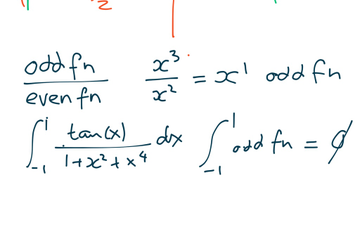 odd fn / even fn   x³/x² = x¹ odd fn
∫₋₁¹ tan(x) / (1+x²+x⁴) dx   ∫₋₁¹ odd fn = 0